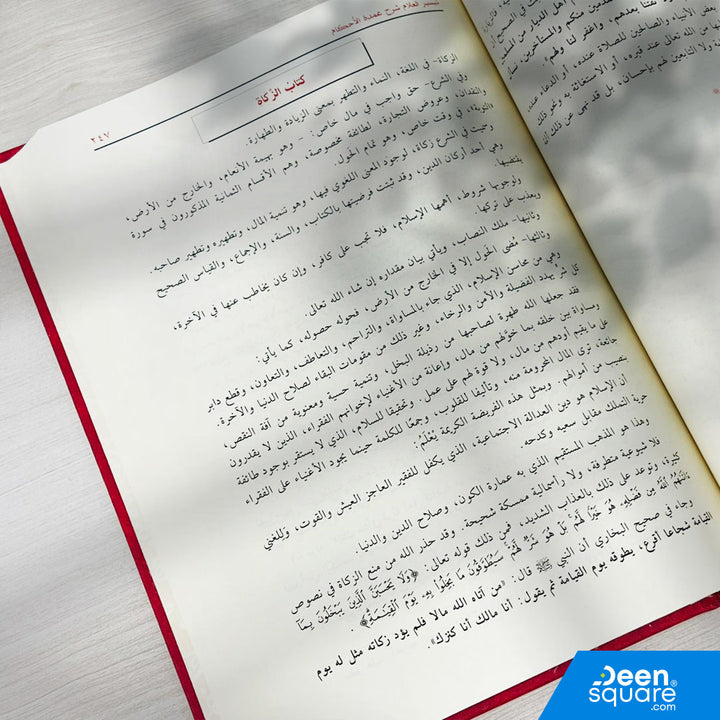 تيسير العلام شرح عمدة الأحكام
كتاب الزكاة
٢٤٧
الزكاة- في اللغة، النماء والتطهر بمعنى الزيادة والطهارة.
وفي الشرع- حق واجب في مال خاص: - وهو بهيمة الأنعام، والخارج من الأرض،
والنقدان، وعروض التجارة، لطائفة مخصوصة، وهم الأقسام الثمانية المذكورون في سورة
«التوبة»، في وقت خاص، وهو تمام الحول.
وسميت في الشرع زكاة، لوجود المعنى اللغوي فيها، وهو تنمية المال، وتطهيره وتطهير صاحبه.
وهي أحد أركان الدين، وقد ثبتت فرضيتها بالكتاب، والسنة، والإجماع، والقياس الصحيح
يقتضيها.
ولوجوبها شروط، أهمها الإسلام، فلا تجب على كافر، وإن كان يخاطب عنها في الآخرة،
ويعذب على تركها.
وثانيها- ملك النصاب، ويأتي بيان مقداره إن شاء الله تعالى.
وثالثها- مُضى الحول إلا في الخارج من الأرض، فحوله حصوله، كما يأتي:
وهي من محاسن الإسلام، الذي جاء بالمساواة، والتراحم، والتعاطف، والتعاون، وقطع دابر
كل شر يهدد الفضيلة والأمن والرخاء، وغير ذلك من مقومات البقاء لصلاح الدنيا والآخرة.
فقد جعلها الله طهرة لصاحبها من رذيلة البخل، وتنمية حسية ومعنوية من آفة النقص،
ومساواة بين خلقه بما خولهم من مال، وإعانة من الأغنياء لإخوانهم الفقراء، الذين لا يقدرون
على ما يقيم أودهم من مال، ولا قوة لهم على عمل. وتحقيقا للسلام، الذي لا يستقر بوجود طائفة
جائعة، ترى المال المحرومة منه، وتأليفا للقلوب، وجمعًا للكلمة حينما يجود الأغنياء على الفقراء
بنصيب من أموالهم. وبمثل هذه الفريضة الكريمة يُعْلَمُ:
أن الإسلام هو دين العدالة الاجتماعية، الذي يكفل للفقير العاجز العيش والقوت، وللغني
حرية التملك مقابل سعيه وكدحه.
وهذا هو المذهب المستقيم الذي به عمارة الكون، وصلاح الدين والدنيا.
فلا شيوعية متطرفة، ولا رأسمالية ممسكة شحيحة. وقد حذر الله من منع الزكاة في نصوص
كثيرة، وتوعد على ذلك بالعذاب الشديد، فمن ذلك قوله تعالى: ﴿وَلَا يَحْسَبَنَّ الَّذِينَ يَبْخَلُونَ بِمَآ
ءَاتَىٰهُمُ ٱللَّهُ مِن فَضْلِهِۦ هُوَ خَيْرًا لَّهُم بَلْ هُوَ شَرٌّ لَّهُمْ سَيُطَوَّقُونَ مَا بَخِلُوا۟ بِهِۦ يَوْمَ ٱلْقِيَـٰمَةِ﴾.
وجاء في صحيح البخاري أن النبي ﷺ قال: «من آتاه الله مالا فلم يؤد زكاته مثل له يوم
القيامة شجاعا أقرع، يطوقه يوم القيامة ثم يقول: أنا مالك أنا كنزك».
Deen
square
.com